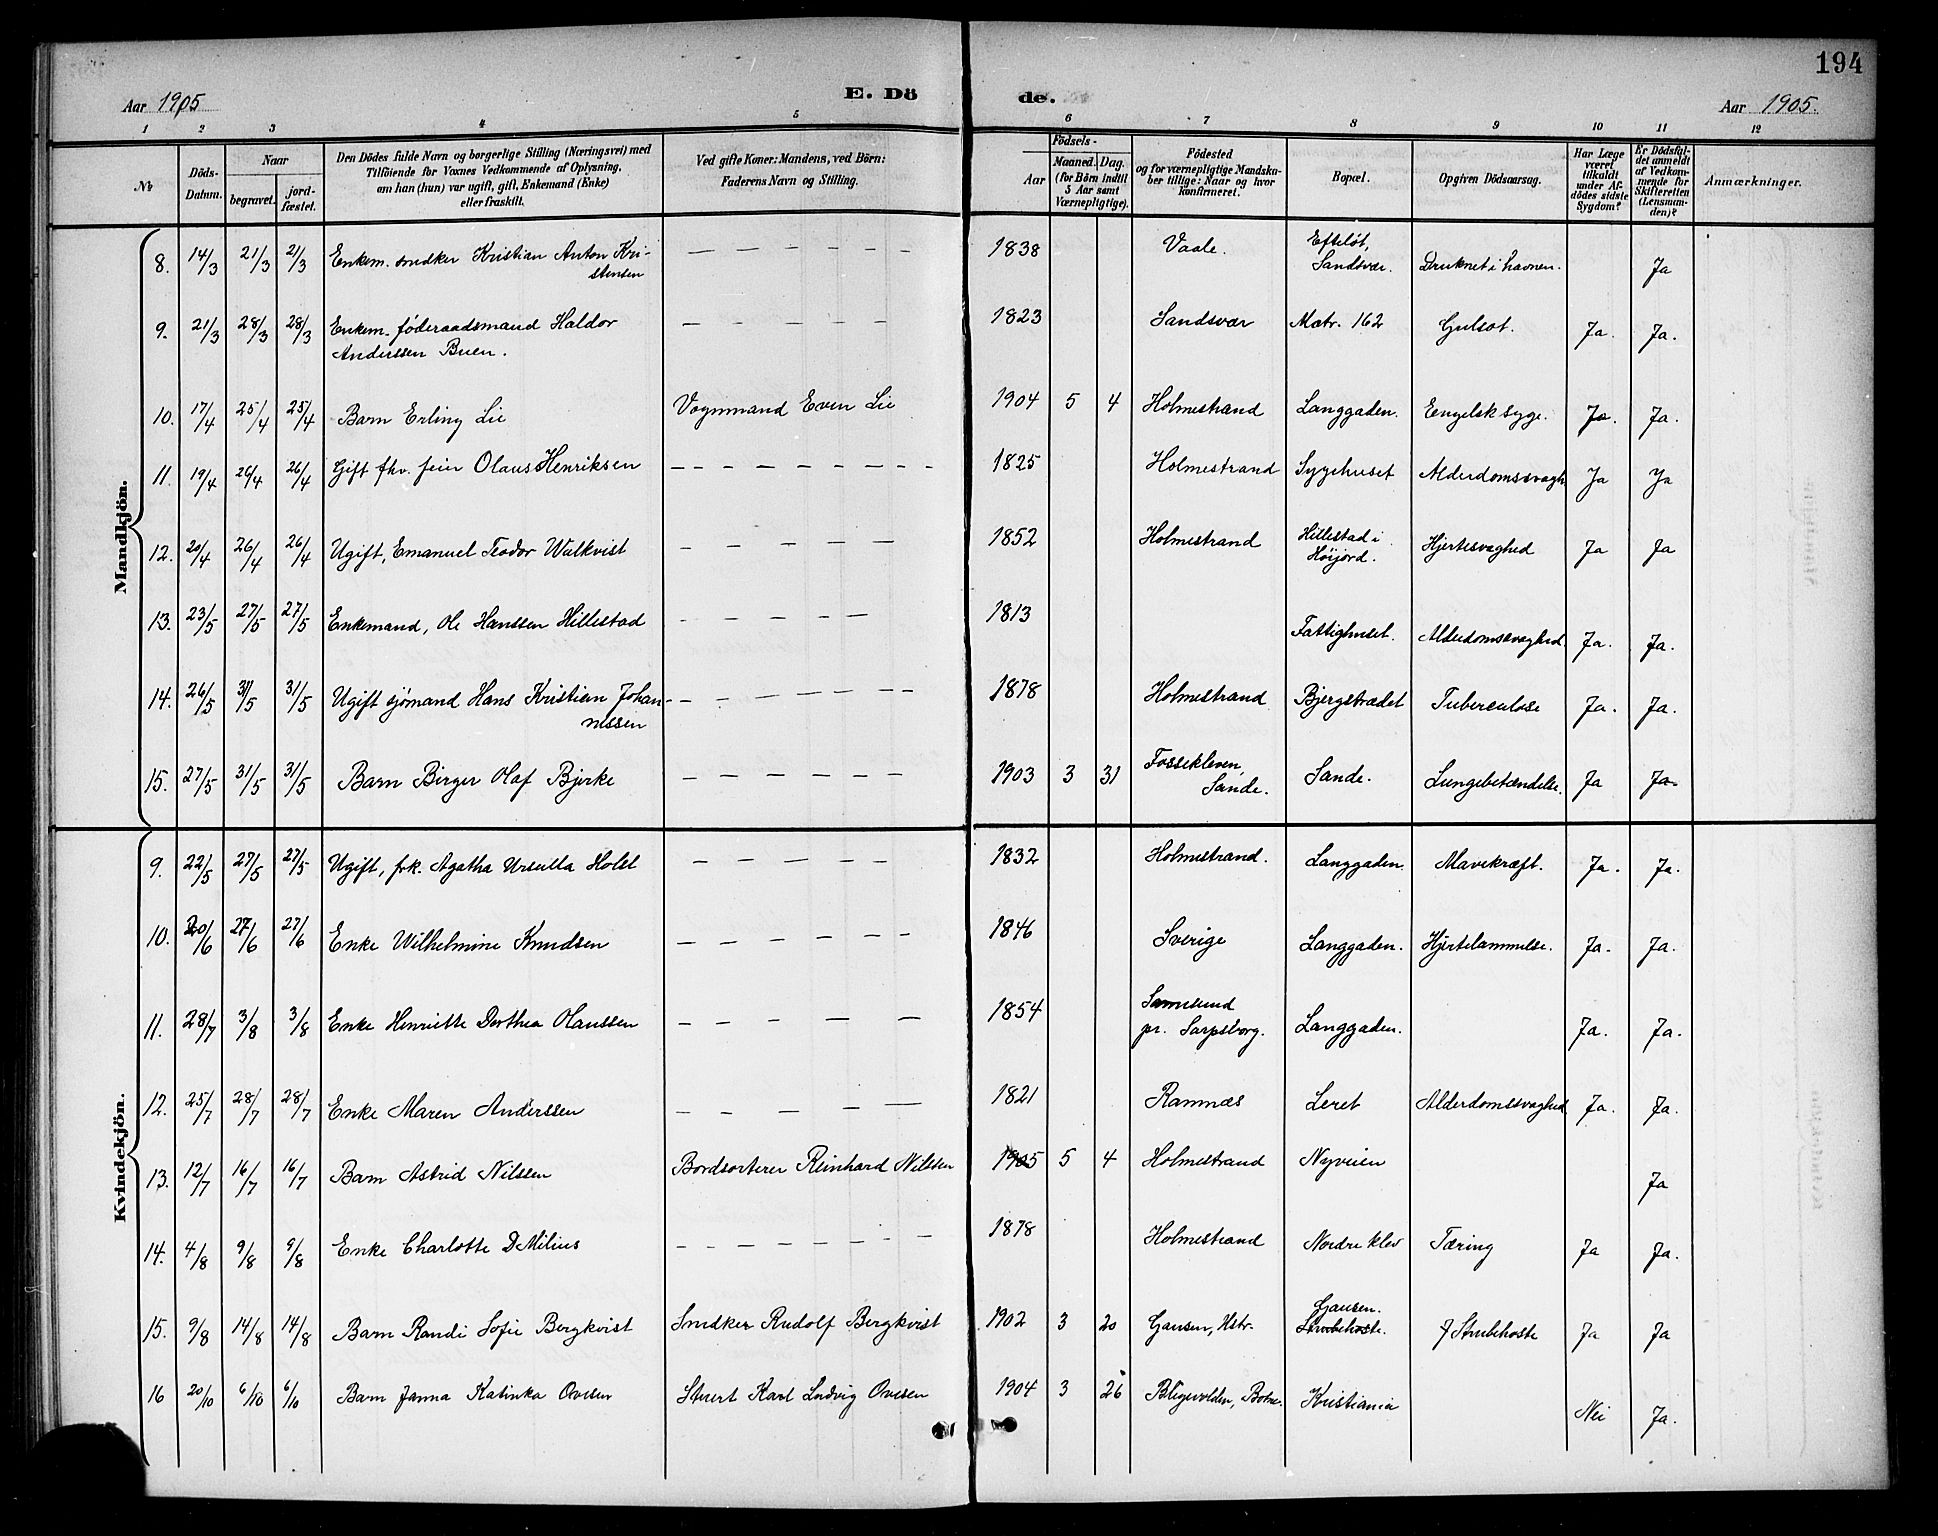 194
Aar 1905
E. Dö de.
Aar 1905.
1 2 3 4 5 6 7 8 9 10 11 12
No
Döds-Datum.
Naar
begravet.
jord-fæstet.
Den Dödes fulde Navn og borgerlige Stilling (Næringsvei) med
Tilföiende for Voxnes Vedkommende af Oplysning,
om han (hun) var ugift, gift, Enkemand (Enke)
eller fraskilt.
Ved gifte Koner: Mandens, ved Börn:
Faderens Navn og Stilling.
Födsels-
Aar
Maaned. Dag.
(for Börn indtil
5 Aar samt
Værnepligtige).
Födested
og for værnepligtige Mandska-
ber tillige: Naar og hvor
konfirmeret.
Bopæl.
Opgiven Dödsaarsag.
Har Læge
været
tilkaldt
under Af-
dödes sidste
Sygdom?
Er Dödsfal-
det anmeldt
af Vedkom-
mende for
Skifteretten
(Lensman-
den)?
Anmærkninger.
Mandkjön.
8. 14/3 21/3 21/3 Enkem. snedker Kristian Anton Kri- — — — — — 1838 Vaale. Efteløt, Sandsvær. Druknet i havnen. Ja
stensen
9. 21/3 28/3 28/3 Enkem. føderaadsmand Haldor — — — — — 1823 Sandsvær Matr. 162 Gulsot. Ja. Ja.
Anderssen Buen.
10. 17/4 25/4 25/4 Barn Erling Lie Vognmand Even Lie 1904 5 4 Holmestrand Langgaden. Eengelsk syge. Ja. Ja.
11. 19/4 26/4 26/4 Gift fhv. feier Olaus Henriksen — — — — — — — — 1825 Holmestrand Sygehuset Alderdomssvagh Ja Ja
12. 20/4 26/4 26/4 Ugift, Emanuel Teodor Walkvist — — — — — 1852 Holmestrand Hillestad i Høijord. Hjertesvaghed Ja Ja
13. 23/5 27/5 27/5 Enkemand, Ole Hanssen Hillestad — — — — — 1813 Fattighuset. Alderdomssvaghed. Ja. Ja.
14. 26/5 31/5 31/5 Ugift sjømand Hans Kristian Johan- — — — — — — 1878 Holmestrand Bjergstrædet Tuberculose Ja. Ja.
nessen
15. 27/5 31/5 31/5 Barn Birger Olaf Bjerke — — — — — — 1903 3 31 Fossekleven, Sande. Sande. Lungebetændelse. Ja Ja.
Kvindekjön.
9. 22/5 27/5 27/5 Ugift, frk. Agatha Ursulla Holst — — — — — 1832 Holmestrand. Langgaden. Mavekræft. Ja. Ja.
10. 20/6 27/6 27/6 Enke Wilhelmine Knudsen — — — — — — 1846 Sverige Langgaden. Hjertelammelse. Ja. Ja.
11. 28/7 3/8 3/8 Enke Henriette Dorthea Olaussen — — — — — 1854 pr. Sarpsborg. Langgaden. Ja. Ja.
12. 25/7 28/7 28/7 Enke Maren Anderssen — — — — — 1821 Ramnæs Leret Alderdomssvaghed Ja. Ja.
13. 12/7 16/7 16/7 Barn Astrid Nilssen Bordsorterer Reinhard Nilssen 1905 5 4 Holmestrand Nyveien Ja
14. 4/8 9/8 9/8 Enke Charlotte D Milius — — — — — — — 1878 Holmestrand Nordre klev Tæring Ja Ja.
15. 9/8 14/8 14/8 Barn Randi Sofie Bergkvist Snedker Rudolf Bergkvist 1902 3 20 Gausen, Hstr. Gausen. Strubehoste. Strubehoste Ja Ja
16 20/10 6/10 6/10 Barn Janna Katinka Ovesen Stuert Karl Ludvig Ovesen 1904 3 26 Kristiania Nei Ja.